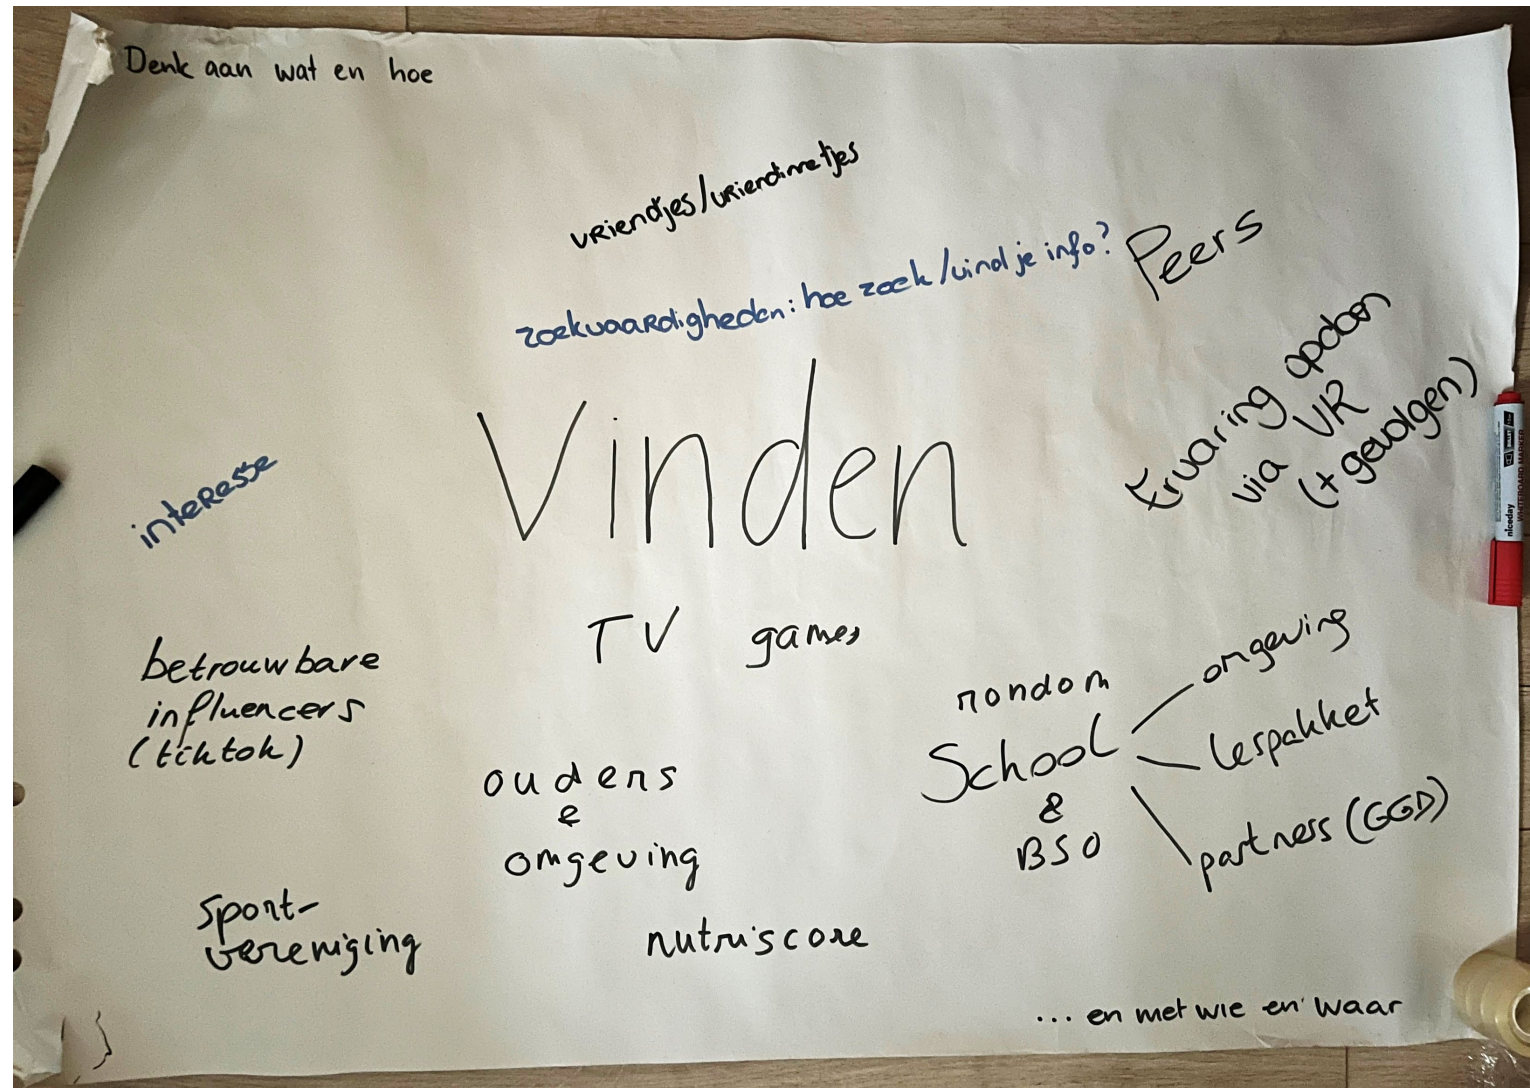 Denk aan wat en hoe
vriendjes/vriendinnetjes
zoekvaardigheden: hoe zoek/vind je info?
Peers
Ervaring opdoen
via VR
(+ gevolgen)
Vinden
interesse
TV games
betrouwbare
influencers
(tiktok)
ouders
e
omgeving
rondom
School
&
BSO
omgeving
lespakket
partners (GGD)
sport-
vereniging
nutriscore
... en met wie en waar
niceday
WHITEBOARD MARKER